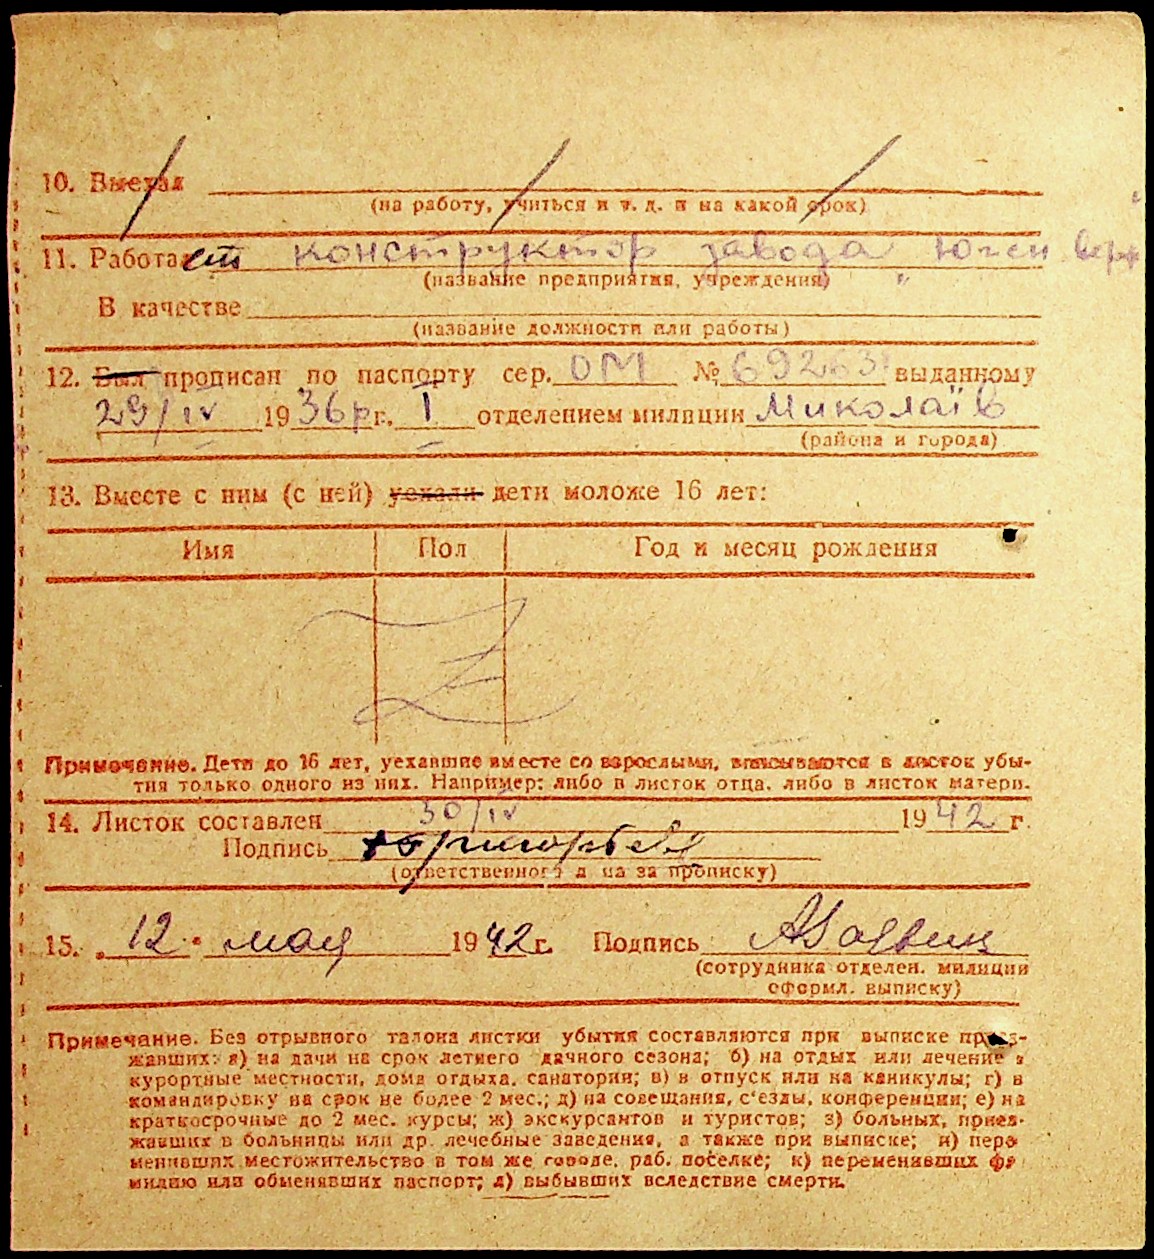 10. Выехал
(на работу, учиться и т. д. и на какой срок)
11. Работа ст конструктор завода "Юген верф
(название предприятия, учреждения)
В качестве
(название должности или работы)
12. Был прописан по паспорту сер. ОМ № 692631 выданному
29/IV 1936 р г. I отделением милиции Миколаїв
(района и города)
13. Вместе с ним (с ней) уехали дети моложе 16 лет:
Имя Пол Год и месяц рождения
Примечание. Дети до 16 лет, уехавшие вместе со взрослыми, вписываются в листок убы-
тия только одного из них. Например: либо в листок отца, либо в листок матери.
14. Листок составлен 30/IV 1942 г.
Подпись
(ответственного л на за прописку)
15. „ 12 " мая 1942 г. Подпись
(сотрудника отделен. милиции
оформл. выписку)
Примечание. Без отрывного талона листки убытия составляются при выписке приез-
жавших: а) на дачи на срок летнего дачного сезона; б) на отдых или лечение в
курортные местности, дома отдыха, санатории; в) в отпуск или на каникулы; г) в
командировку на срок не более 2 мес.; д) на совещания, с'езды, конференции; е) на
краткосрочные до 2 мес. курсы; ж) экскурсантов и туристов; з) больных, приез-
жавших в больницы или др. лечебные заведения, а также при выписке; и) пере
менивших местожительство в том же городе, раб. поселке; к) переменивших фа
милию или обменявших паспорт; л) выбывших вследствие смерти.